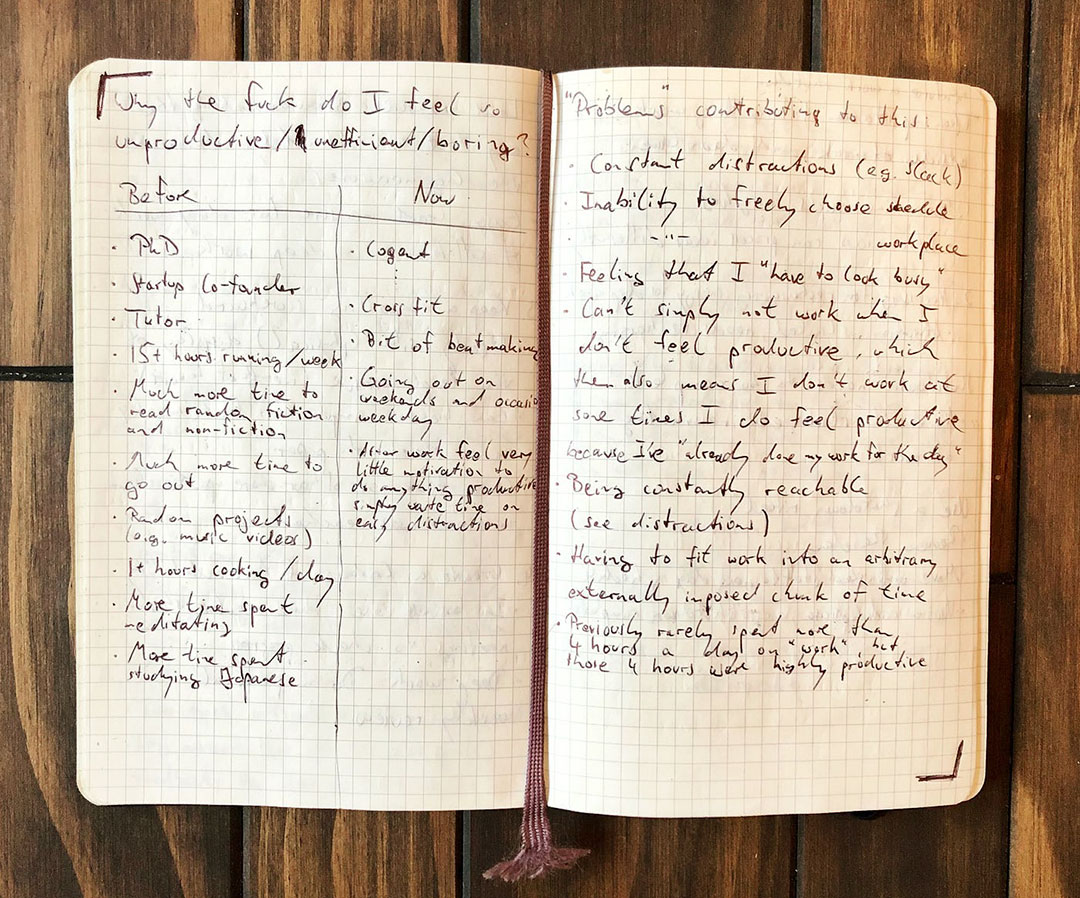 Why the fuck do I feel so
unproductive/inefficient/boring?
Before
· PhD
· Startup Co-founder
· Tutor
· 15+ hours running/week
· Much more time to
read random fiction
and non-fiction
· Much more time to
go out
· Random projects
(e.g. music videos)
· 1+ hours cooking/day
· More time spent
meditating
· More time spent
studying Japanese
Now
· Cogent
· Crossfit
· Bit of beatmaking
· Going out on
weekends and occasio
weekday
· After work feel very
little motivation to
do anything productive
simply waste time on
easy distractions
"Problems" contributing to this:
· Constant distractions (e.g. Slack)
· Inability to freely choose schedule
· -"- workplace
· Feeling that I "have to look busy"
· Can't simply not work when I
don't feel productive, which
then also means I don't work at
some times I do feel productive
because I've "already done my work for the day"
· Being constantly reachable
(see distractions)
· Having to fit work into an arbitrary
externally imposed chunk of time
· Previously rarely spent more than
4 hours a day on "work", but
those 4 hours were highly productive